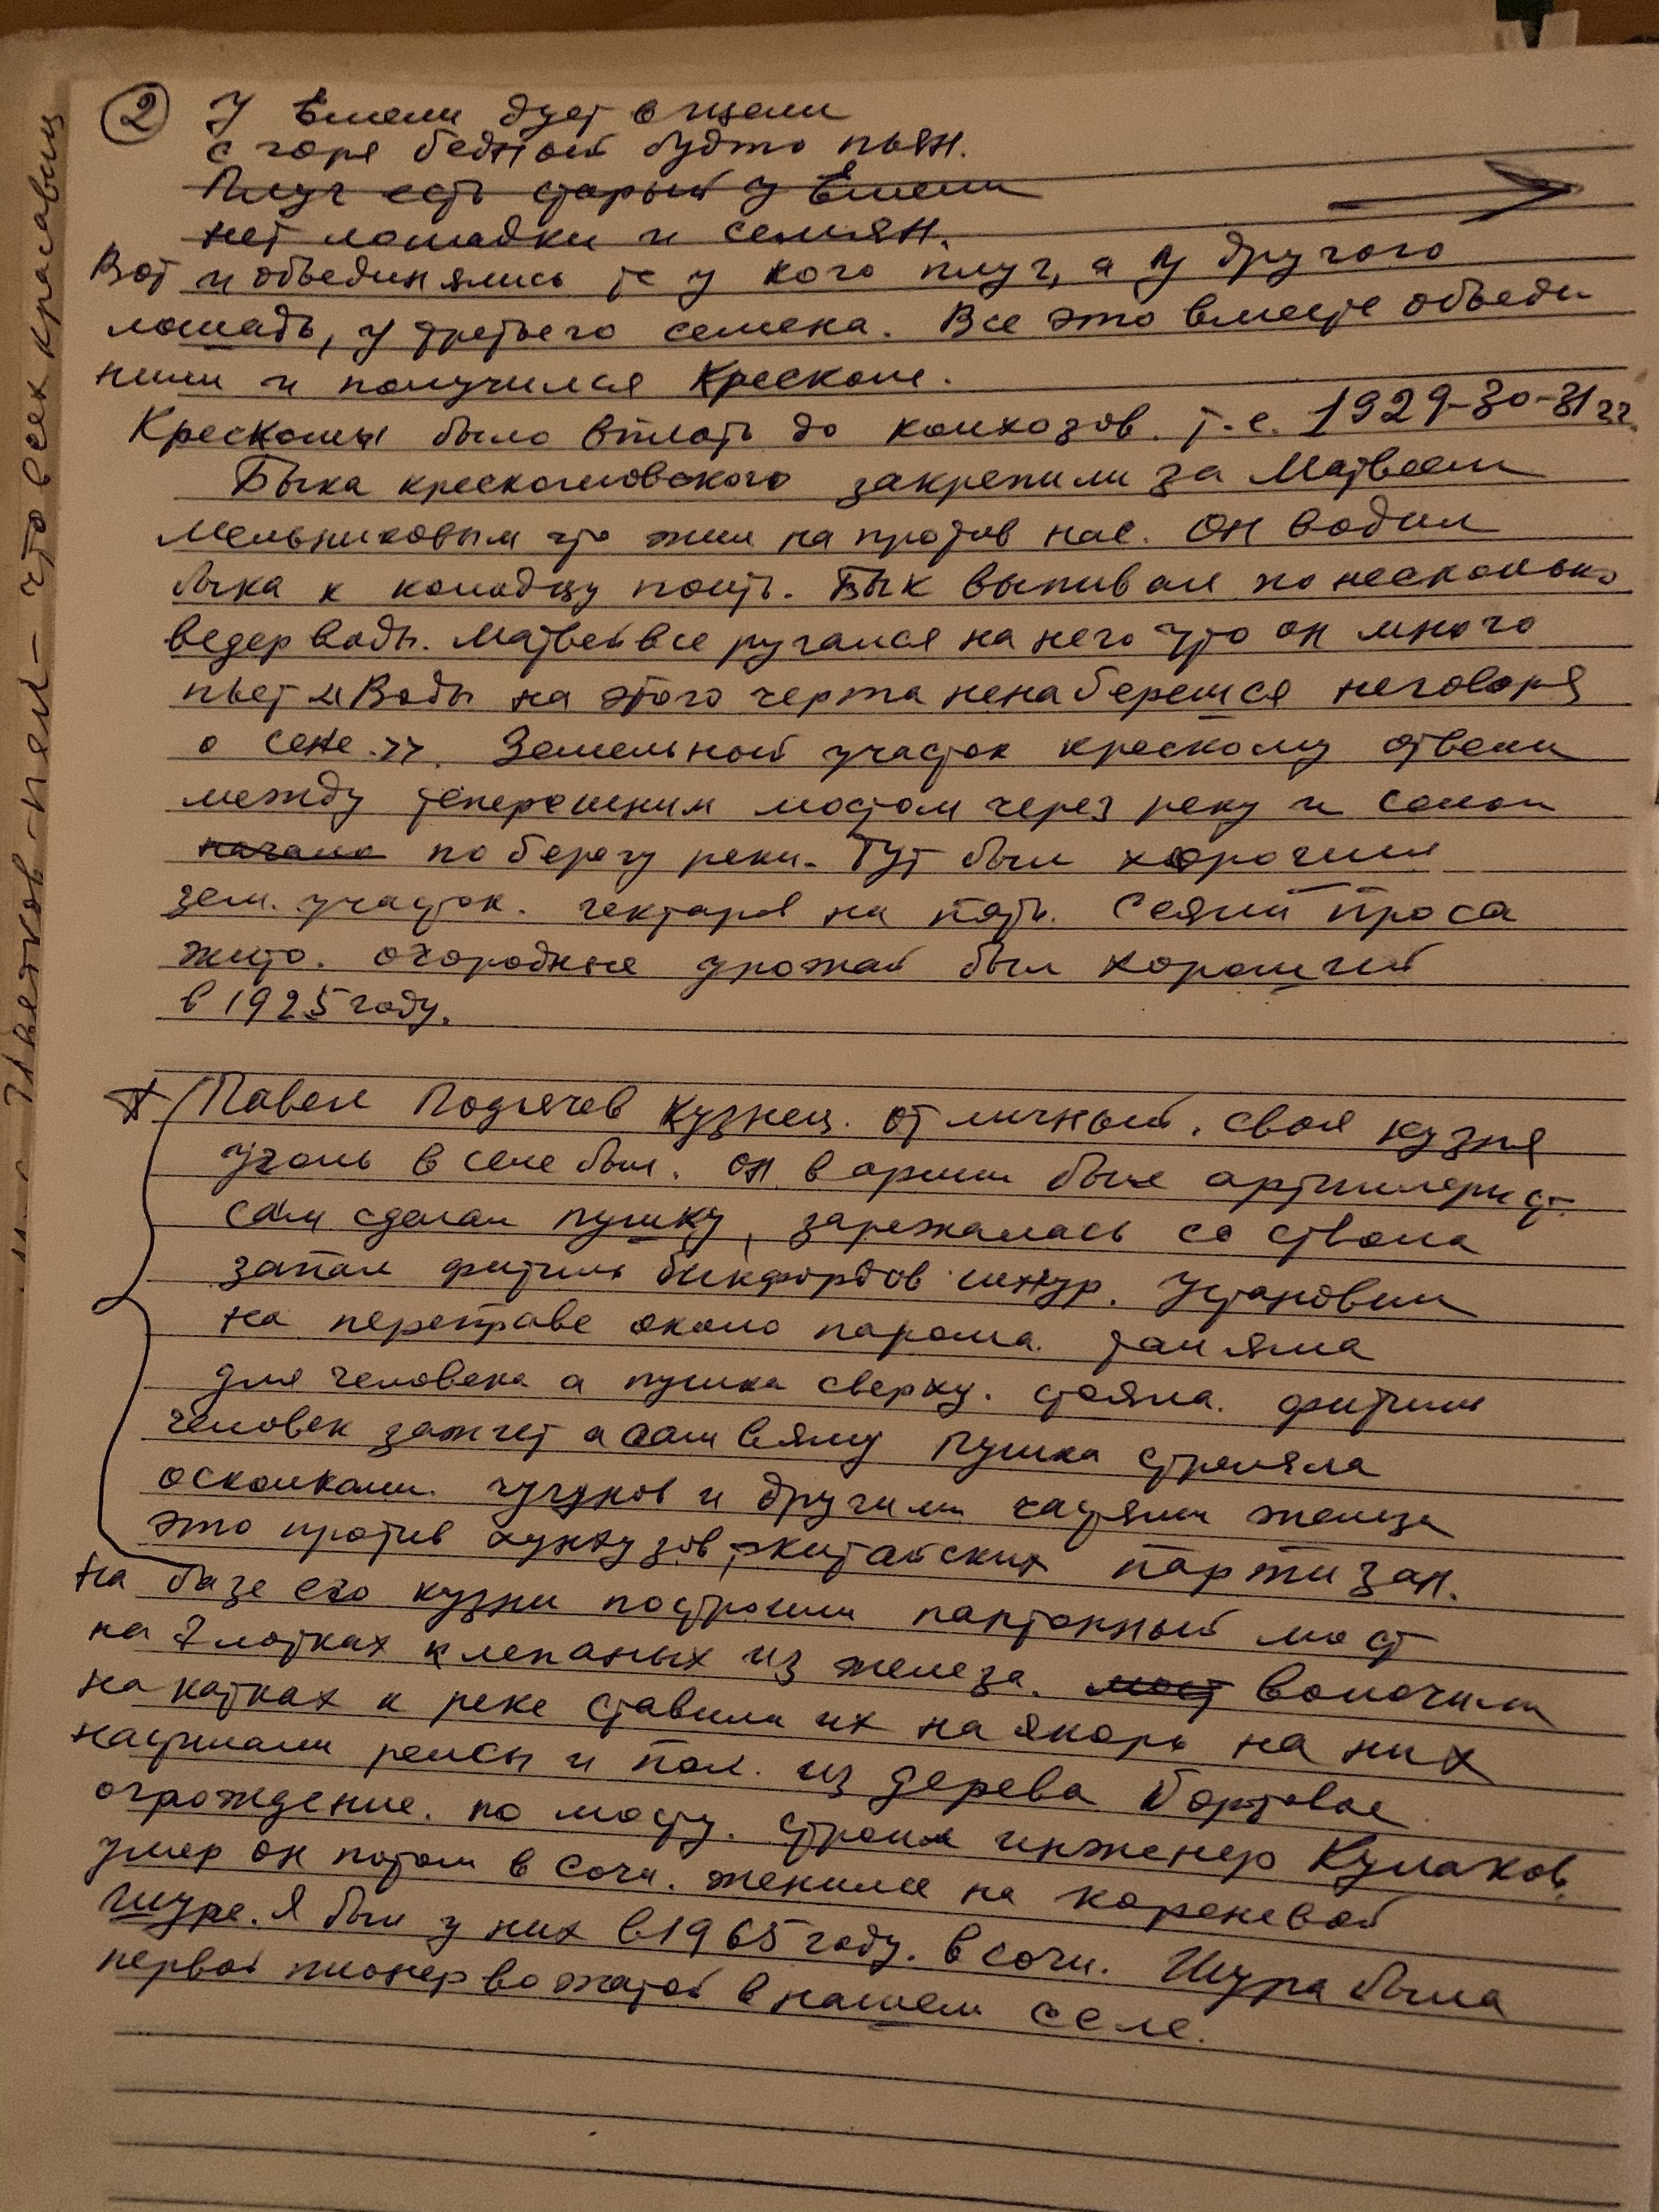 ② У Емели дует в щели
с горя бедный будто пьян.
Плуг есть старый у Емели
нет лошадки и семян.
Вот и объединялись те у кого плуг, а у другого
лошадь, у третьего семена. Все это вместе объеди
нили и получился Креском.
Крескомы было вплоть до колхозов. т.е. 1929-30-31 гг.
Быка крескомовского закрепили за Матвеем
Мельниковым что жил на против нас. Он водил
быка к колодцу поить. Бык выпивал по несколько
ведер воды. Матвей все ругался на него что он много
пьет "Воды на этого черта ненаберешся неговоря
о сене.". Земельный участок крескому отвели
между теперешним мостом через реку и селом
начало по берегу реки. Тут был хороший
зем. участок. гектаров на пять. Сеяли проса
жито. огородные урожай был хороший
в 1925 году.
Павел Подгачев Кузнец. отличный. своя кузня
уголь в селе был. он в армии был артиллерист.
сам сделал пушку, заряжалась со ствола
запал фитиль бикфордов шнур. Установили
на переправе около парома. там яма
для человека а пушка сверху. стояла. фитиль
человек зажгет а сам в яму пушка стреляла
осколками. чугунов и другими частями железа
это против хунхузов, китайских партизан.
На базе его кузни построили пантонный мост
на 7 лотках клепаных из железа. мост волочили
на катках к реке ставили их на якорь на них
настилали рельсы и пол. из дерева бортовое
ограждение. по мосту. строил инженер Кулаков.
умер он потом в Сочи. женился на Кореневой
Шуре. Я был у них в 1965 году. в Сочи. Шура была
первой пионервожатой в нашем селе.
Цветков - пел - что всех красавиц